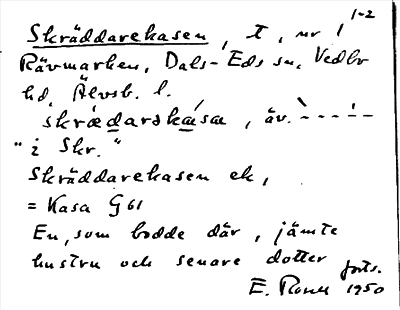 1-2
Skräddarekasen, t, nr 1
Rävmarken, Dals-Eds sn, Vedbo
hd, Älvsb. l.
skræ̀darəkæ̀sæ, äv. `---'--
"i Skr."
Skräddarekasen ek,
= Kasa G 61
En, som bodde där, jämte
hustru och senare dotter
forts.
E. 1950